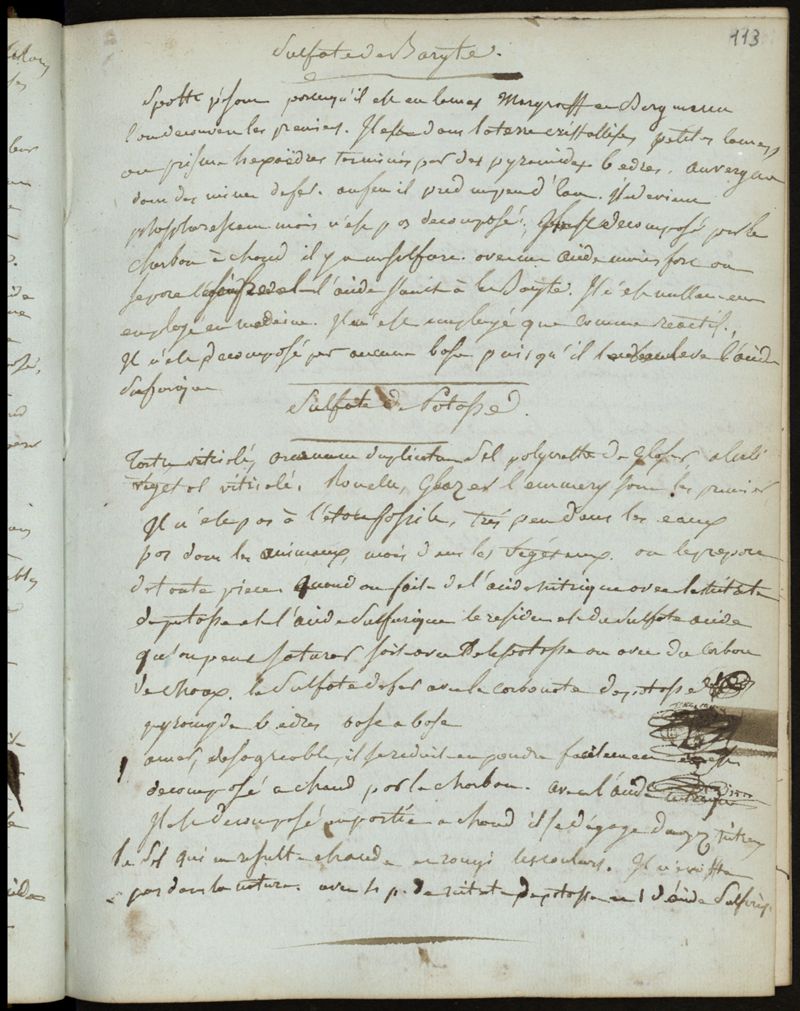 113
Sulfate de Baryte.
Spath pesant parcequ'il est en lames Margraff et Bergmann
l'on decouvert les premiers. Il est dans la terre cristallisé, petites lames
ou prisme hexaèdres terminés par des pyramides 6 edres. auvergne
dans des mines de fer. au feu il perd un peu d'eau. Il devient
phosphorescent mais n'est pas decomposé. Il est decomposé par le
charbon à chaud il y a un sulfure. avec un acide moins fort on
separe l'acide s'unit à la Baryte. Il n'est nullement
employé en medecine. Il n'est employé que comme reactif.
Il n'est decomposé par aucune base puisqu'il enleve l'acide
sulfurique
Sulfate de Potasse.
Tartre vitriolé, arcanum duplicatum Sel polycreste de glaser alcali
vegetal vitriolé. Rouelle, Glazer l'emmery sont les premiers
Il n'est pas à l'etat fossile, très peu dans les eaux
pas dans les animaux, mais dans les vegétaux. on le prepare
de toute piece. quand on fait de l'acide nitrique avec le nitrate
de potasse et l'acide sulfurique le residu est du sulfate acide
qu'on peut saturer soit avec de la potasse ou avec du carbon
de chaux. le sulfate de fer avec le carbonate de potasse
pyramide 6 edres base a base
amer, desagreable, il se reduit en poudre facilement
decomposé a chaud par le charbon. avec l'acide
Il est decomposé en partie a chaud il se dégage du gaz nitreux
le Sel qui en resulte est acide et rougi les couleurs. Il n'existe
pas dans la nature. avec 4 p. de nitrate de potasse et 1 d'acide sulfuriq.